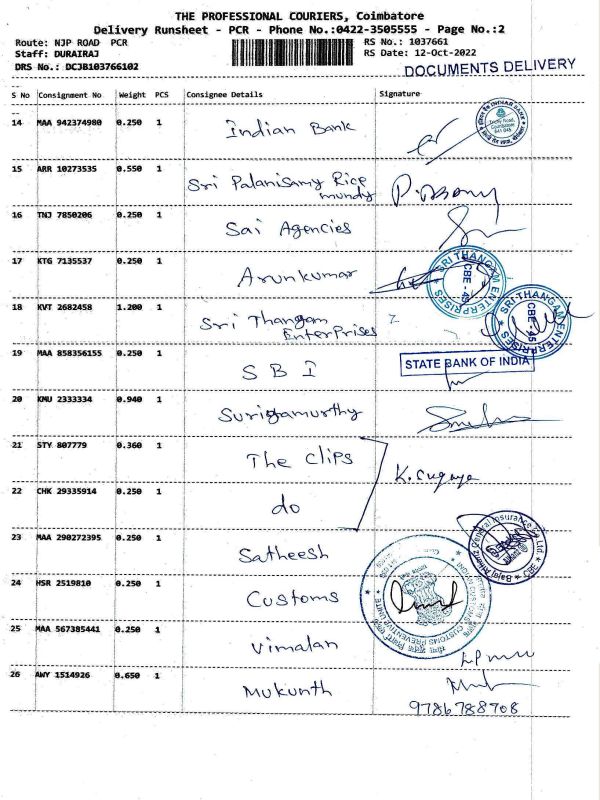 THE PROFESSIONAL COURIERS, Coimbatore
Delivery Runsheet - PCR - Phone No.:0422-3505555 - Page No.:2
Route: NJP ROAD PCR
RS No.: 1037661
Staff: DURAIRAJ
RS Date: 12-Oct-2022
DRS No.: DCJB103766102
DOCUMENTS DELIVERY
S No Consignment No Weight PCS Consignee Details Signature
14 MAA 942374980 0.250 1 Indian Bank
15 ARR 10273535 0.550 1 Sri Palanisamy Rice
mundy
16 TNJ 7850206 0.250 1 Sai Agencies
17 KTG 7135537 0.250 1 Arunkumar
SRI THANGAM ENTERPRISES
CBE -45
18 KVT 2682458 1.200 1 Sri Thangam
Enterprises
SRI THANGAM ENTERPRISES
CBE -45
19 MAA 858356155 0.250 1 SBI
STATE BANK OF INDIA
20 KMU 2333334 0.940 1
21 STY 807779 0.360 1 The Clips
K. Suguya
22 CHK 29335914 0.250 1 do
23 MAA 290272395 0.250 1 Satheesh
24 HSR 2519810 0.250 1 Customs
25 MAA 567385441 0.250 1 Vimalan
26 AWY 1514926 0.650 1 Mukunth
9786788708